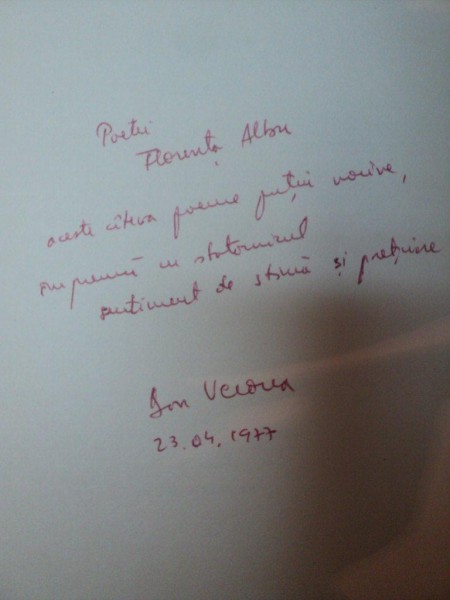 Poetei
Florența Albu
aceste câteva poeme puțin nocive,
împreună cu statornicul
sentiment de stimă și prețuire
Ion Verona
23.04.1977